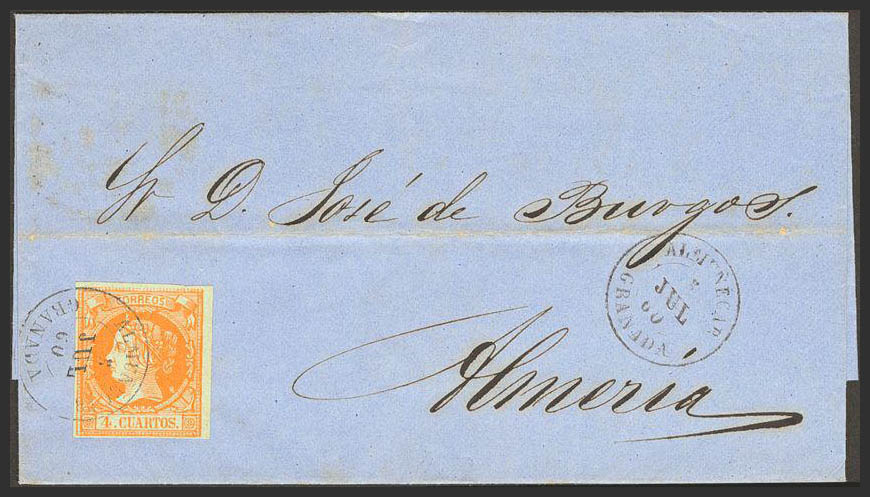 Sr D. José de Burgos.
Almería
CORREOS
4 CUARTOS.
GRANADA
JUL
60
GRANADA
JUL
60